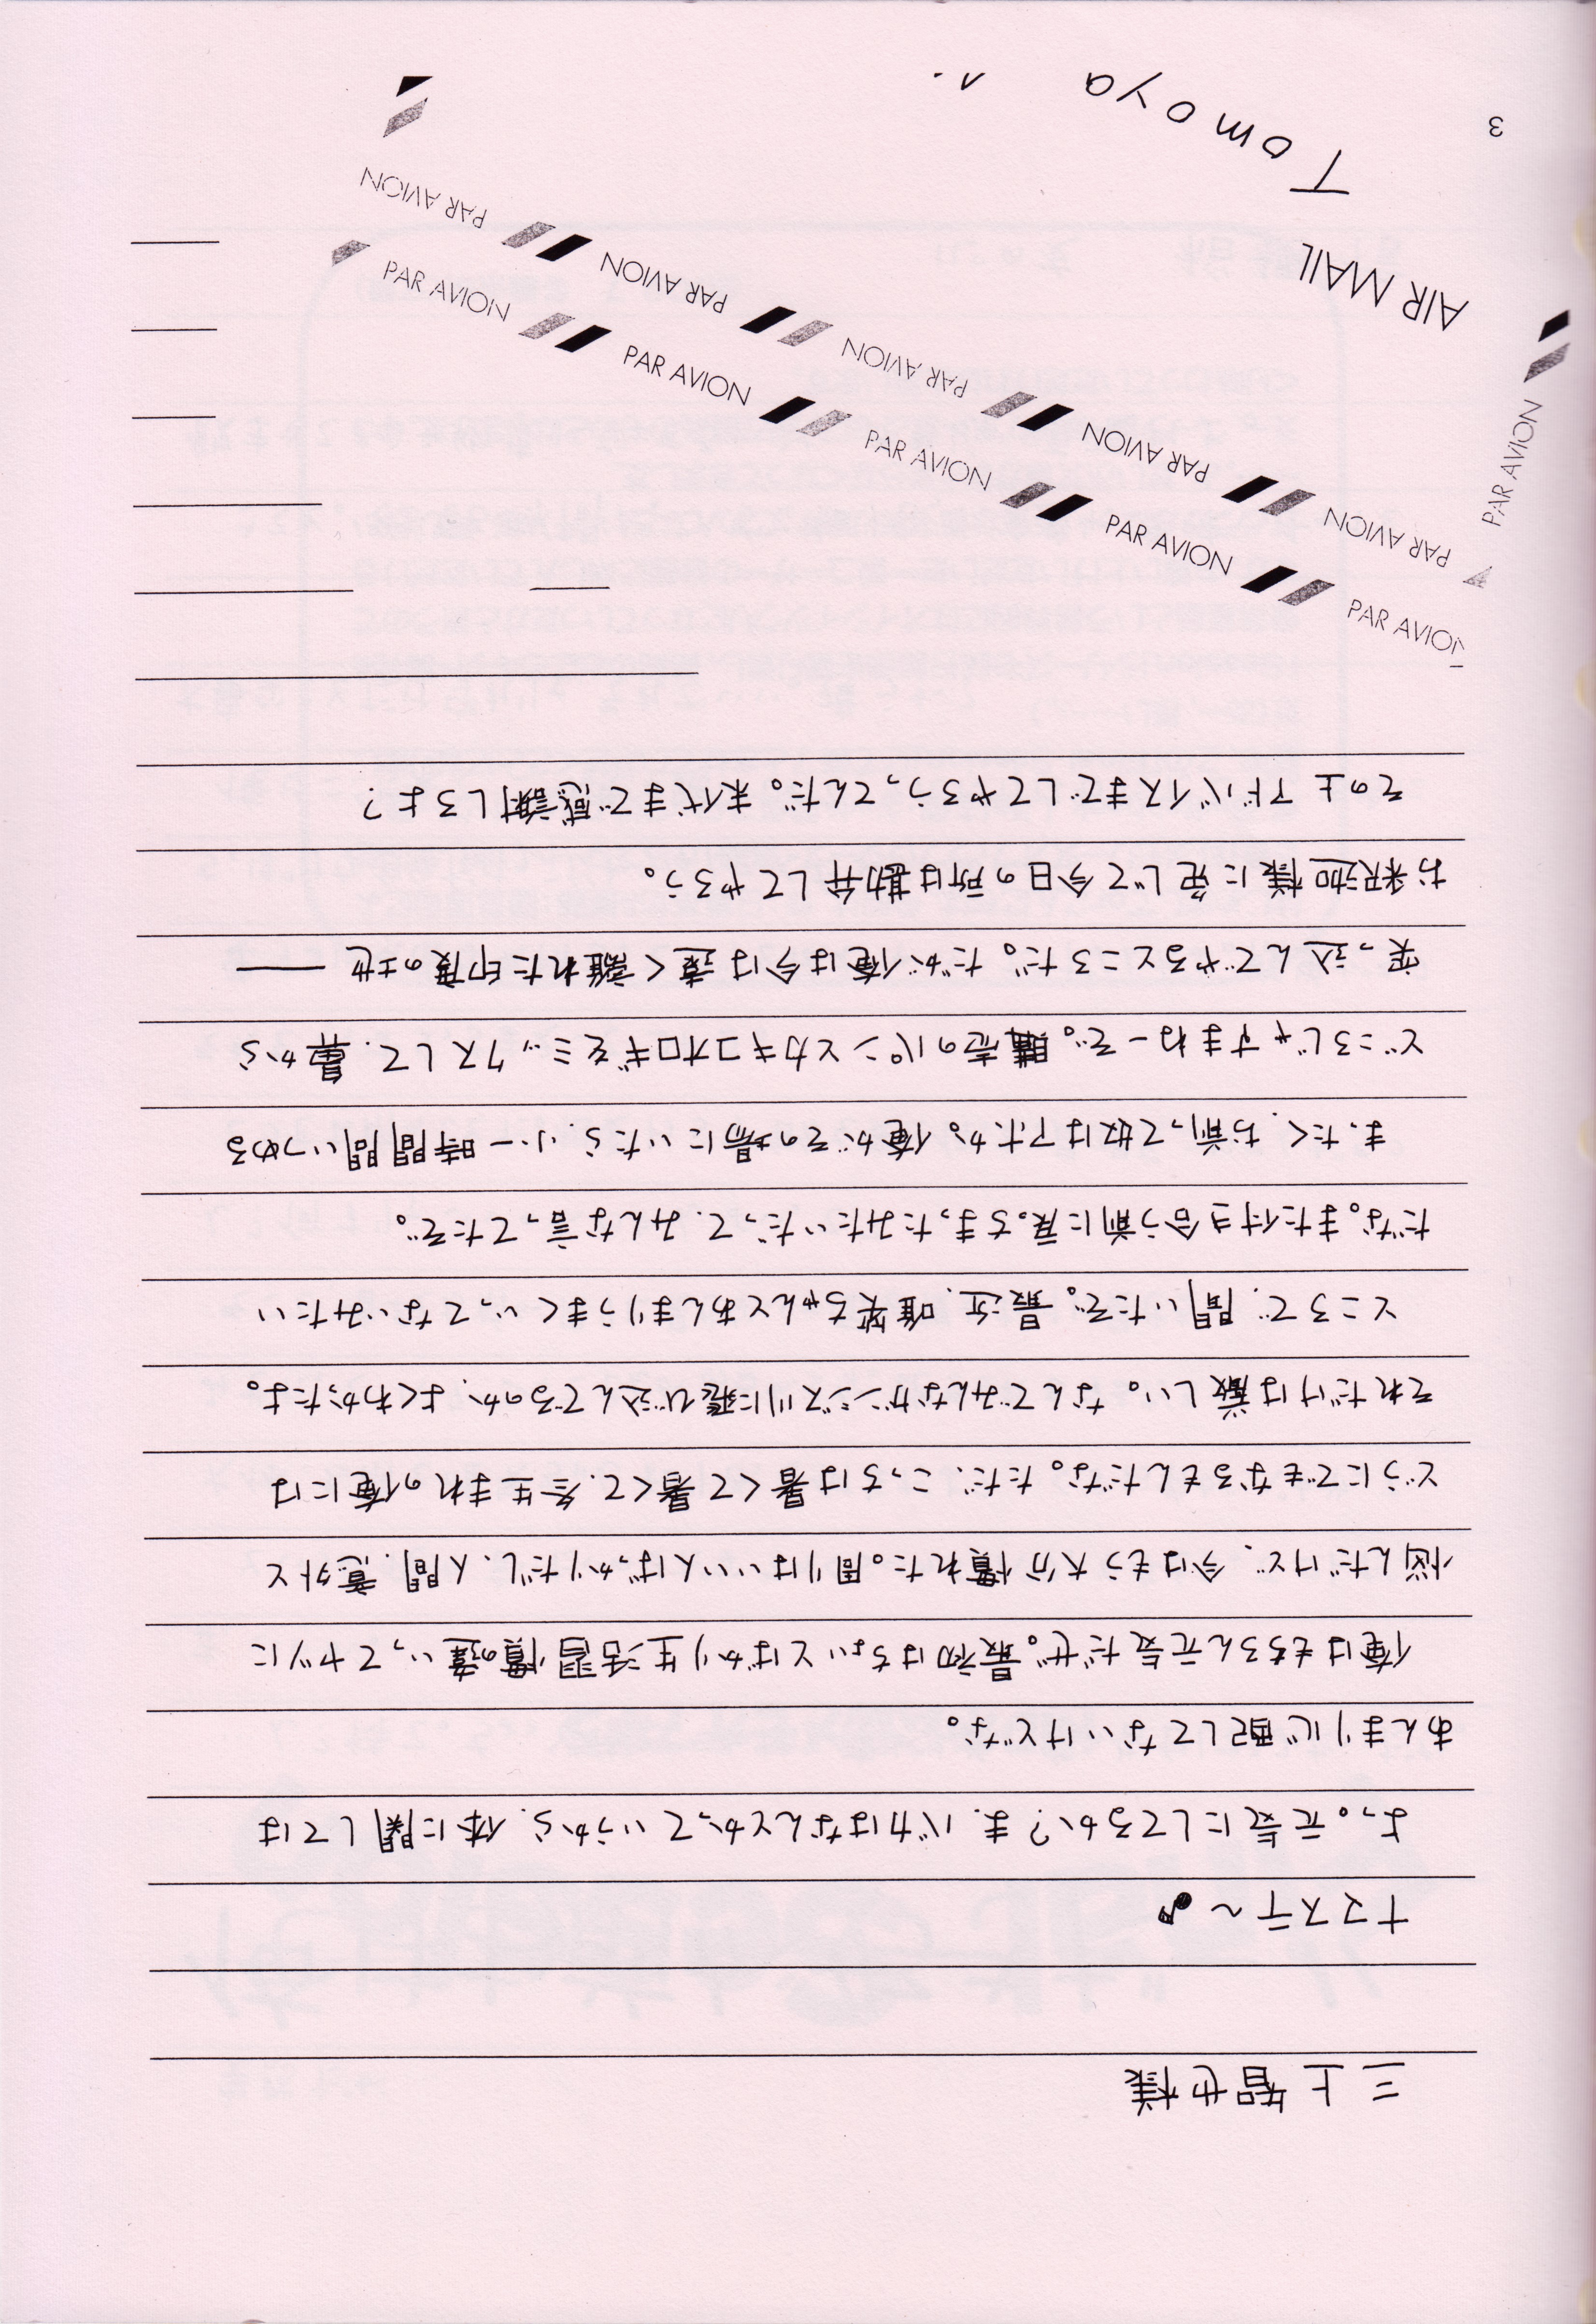 三上智也様
ナマステ～♪
よっ。元気にしてるか？ま、バカはなんとかっていうから、体に関しては
あんまり心配してないけどな。
俺はもちろん元気だぜ。最初はちょいとばかり生活習慣の違いってヤツに
悩んだけど、今はもう大分慣れた。周りはいい人ばっかりだし、人間、意外と
どうにでもなるもんだな。ただ、こっちは暑くて暑くて、冬生まれの俺には
それだけは厳しい。なんでみんなガンジス川に飛び込んでるのか、よくわかったよ。
ところで、聞いたぞ。最近、唯笑ちゃんとあんまりうまくいってないみたい
だな。また付き合う前に戻っちまったみたいだって、みんな言ってたぞ。
まったく、お前って奴はアホか。俺がその場にいたら、小一時間問いつめる
どころじゃすまねーぞ。購売のパンとカキコオロギをミックスして、鼻から
突っ込んでやるところだ。だが俺は今は遠く離れた印度の地――
お釈迦様に免じて今日の所は勘弁してやろう。
その上アドバイスまでしてやろうってんだ。末代まで感謝しろよ？
PAR AVION PAR AVION PAR AVION PAR AVION PAR AVION
PAR AVION PAR AVION PAR AVION PAR AVION PAR AVION
PAR AVION
AIR MAIL
Tomoya
3